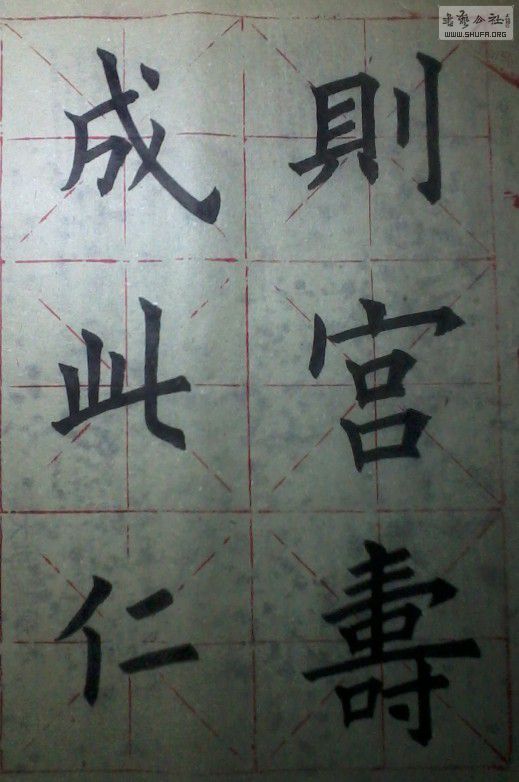 則宮壽
成此仁
書藝公社
WWW.SHUFA.ORG